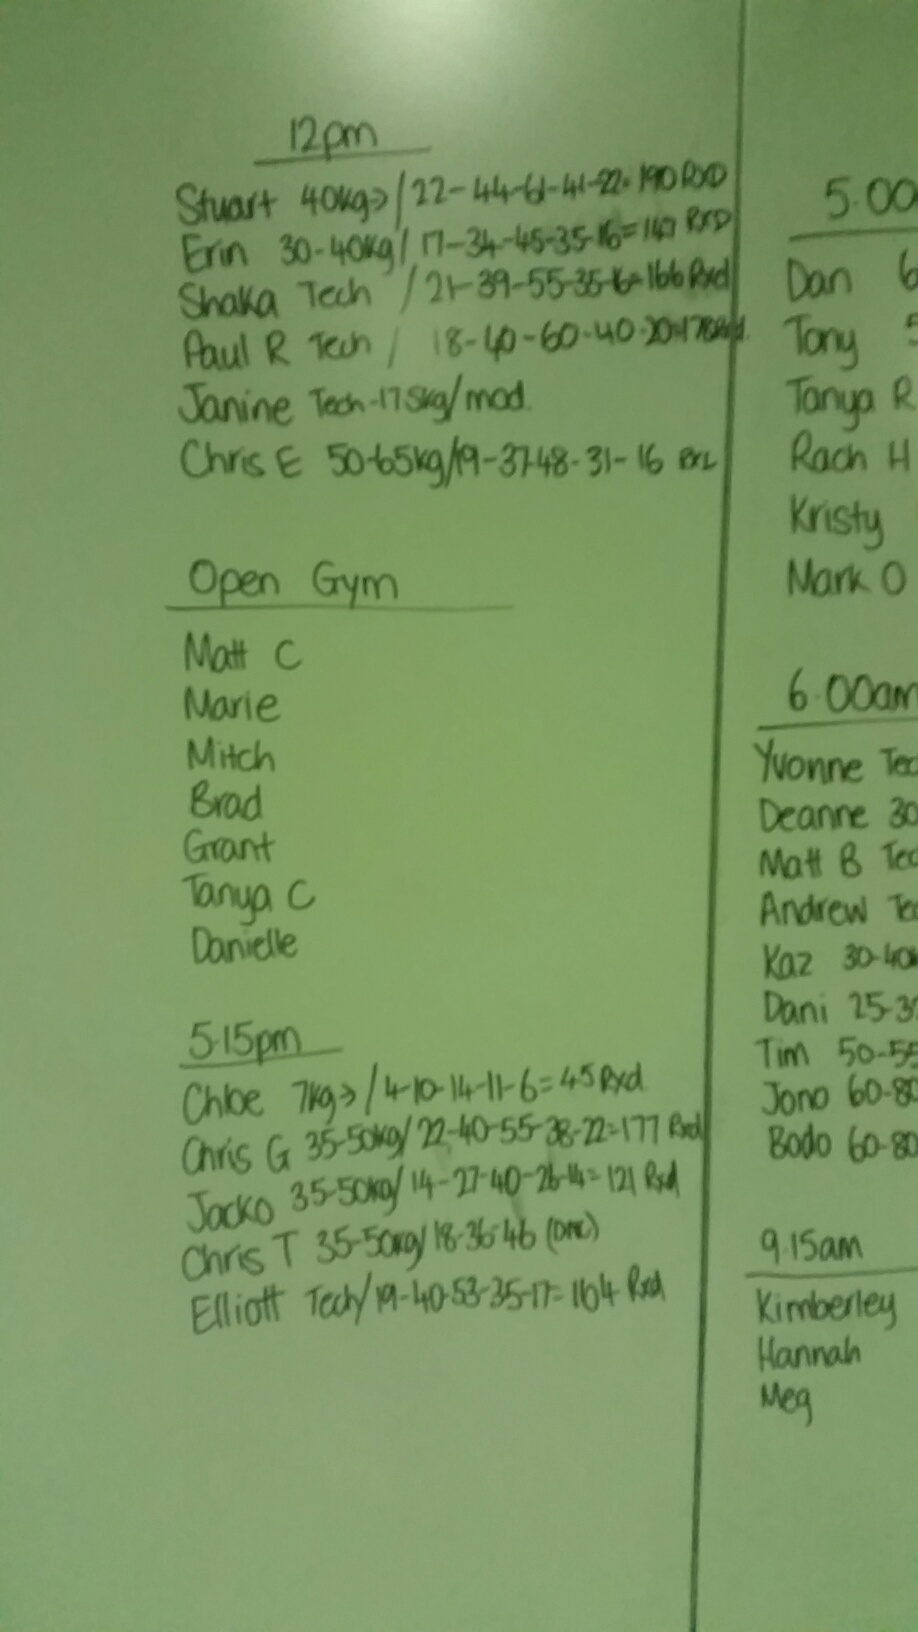 12pm
Stuart 40kg→/22-44-61-41-22=190 RXD
Erin 30-40kg/17-34-45-35-16=147 RXD
Shaka Tech /21-39-55-35-16=166 Rxd
Paul R Tech / 18-40-60-40-20=178 Rxd
Janine Tech-17.5kg/mod.
Chris E 50-65kg/19-37-48-31-16
Open Gym
Matt C
Marie
Mitch
Brad
Grant
Tanya C
Danielle
5.15pm
Chloe 7kg→/4-10-14-11-6=45 Rxd
Chris G 35-50kg/22-40-55-38-22=177 Rxd
Jacko 35-50kg/14-27-40-26-14=121 Rxd
Chris T 35-50kg/18-36-46 (DNC)
Elliott Tech/19-40-53-35-17=164 Rxd
5.00
Dan 6
Tony 5
Tanya R
Rach H
Kristy
Mark O
6.00am
Yvonne Tec
Deanne 30
Matt B Tec
Andrew Te
Kaz 30-40
Dani 25-3
Tim 50-55
Jono 60-80
Bodo 60-80
9.15am
Kimberley
Hannah
Meg